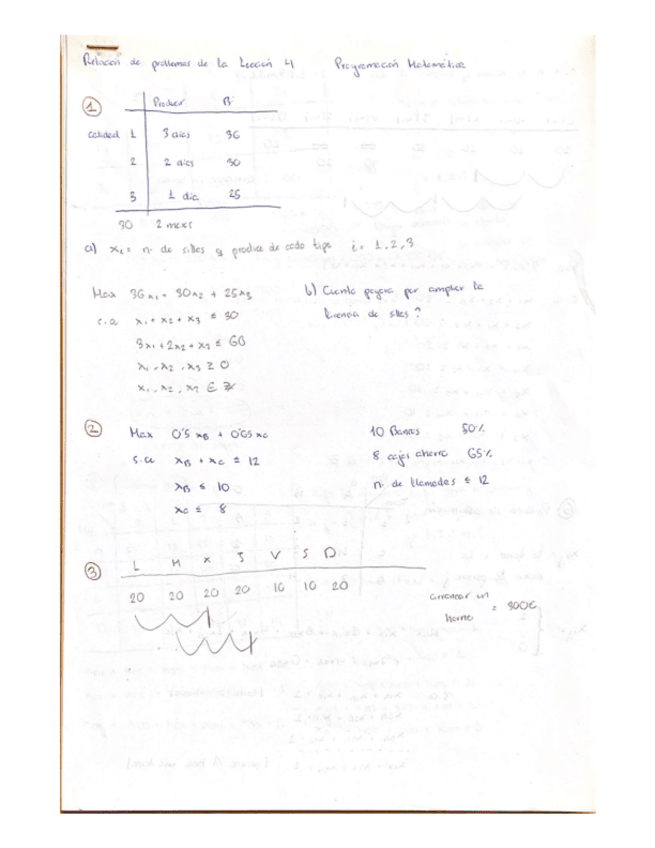 Relación de problemas de la Lección 4 Programación Matemática
1 Producir Bº
calidad 1 3 días 36
2 2 días 30
3 1 día 25
30 2 meses
a) xi = nº de sillas q produce de cada tipo i = 1, 2, 3
Max 36x1 + 30x2 + 25x3
s.a x1 + x2 + x3 ≤ 30
3x1 + 2x2 + x3 ≤ 60
x1, x2, x3 ≥ 0
x1, x2, x3 ∈ Z
b) Cuanto pagaría por ampliar la
licencia de sillas?
2 Max 0'5 xB + 0'65 xC
s.a xB + xC ≤ 12
xB ≤ 10
xC ≤ 8
10 Bancos 50%
8 cajas ahorro 65%
nº de llamadas ≤ 12
3 L M X J V S D
20 20 20 20 10 10 20
arrancar un
horno = 300€